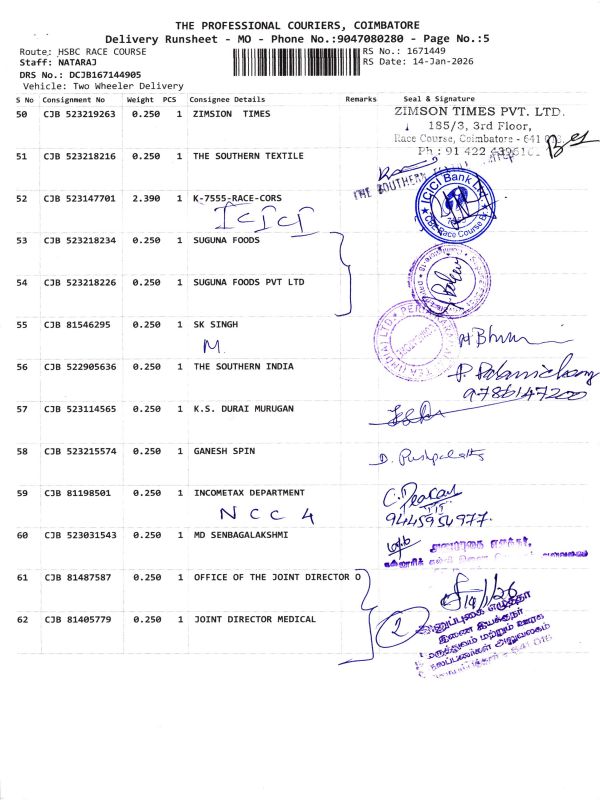 THE PROFESSIONAL COURIERS, COIMBATORE
Delivery Runsheet - MO - Phone No.:9047080280 - Page No.:5
Route: HSBC RACE COURSE RS No.: 1671449
Staff: NATARAJ RS Date: 14-Jan-2026
DRS No.: DCJB167144905
Vehicle: Two Wheeler Delivery
S No Consignment No Weight PCS Consignee Details Remarks Seal & Signature
50 CJB 523219263 0.250 1 ZIMSION TIMES
ZIMSON TIMES PVT. LTD.
185/3, 3rd Floor,
Race Course, Coimbatore - 641
Ph : 91 422
51 CJB 523218216 0.250 1 THE SOUTHERN TEXTILE
THE SOUTHERN
52 CJB 523147701 2.390 1 K-7555-RACE-CORS
ICICI
ICICI Bank Ltd
CBE Race Course Br
53 CJB 523218234 0.250 1 SUGUNA FOODS
54 CJB 523218226 0.250 1 SUGUNA FOODS PVT LTD
55 CJB 81546295 0.250 1 SK SINGH
M.
56 CJB 522905636 0.250 1 THE SOUTHERN INDIA
P. Palanichamy
9786147200
57 CJB 523114565 0.250 1 K.S. DURAI MURUGAN
58 CJB 523215574 0.250 1 GANESH SPIN
D. Pushpalatha
59 CJB 81198501 0.250 1 INCOMETAX DEPARTMENT
NCC 4
9445954977.
60 CJB 523031543 0.250 1 MD SENBAGALAKSHMI
61 CJB 81487587 0.250 1 OFFICE OF THE JOINT DIRECTOR O
14/1/26
62 CJB 81405779 0.250 1 JOINT DIRECTOR MEDICAL
2
இணை இயக்குநர்
மருத்துவம் மற்றும் ஊரக